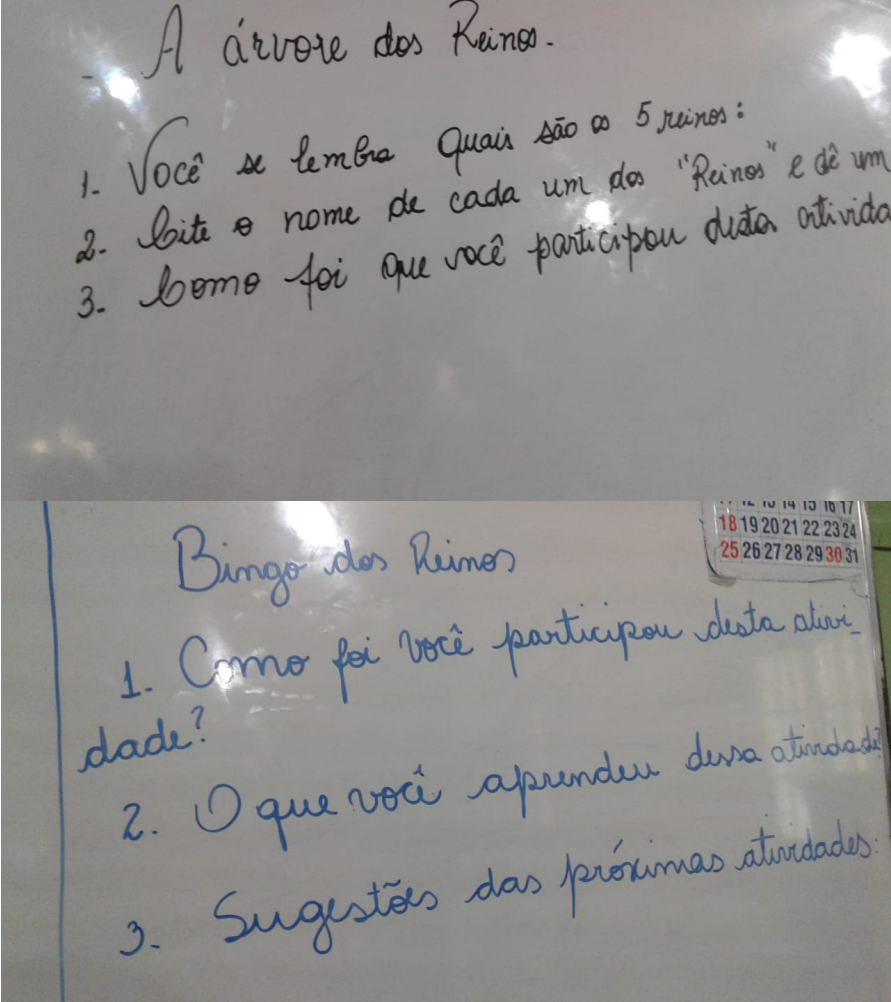 A árvore dos Reinos.
1. Você se lembra Quais são os 5 reinos:
2. Cite o nome de cada um dos "Reinos" e dê um
3. Como foi que você participou desta ativida
14 15 16 17
18 19 20 21 22 23 24
25 26 27 28 29 30 31
Bingo dos Reinos
1. Como foi você participou desta ativi_
dade?
2. O que você aprendeu dessa atividade?
3. Sugestões das próximas atividades: